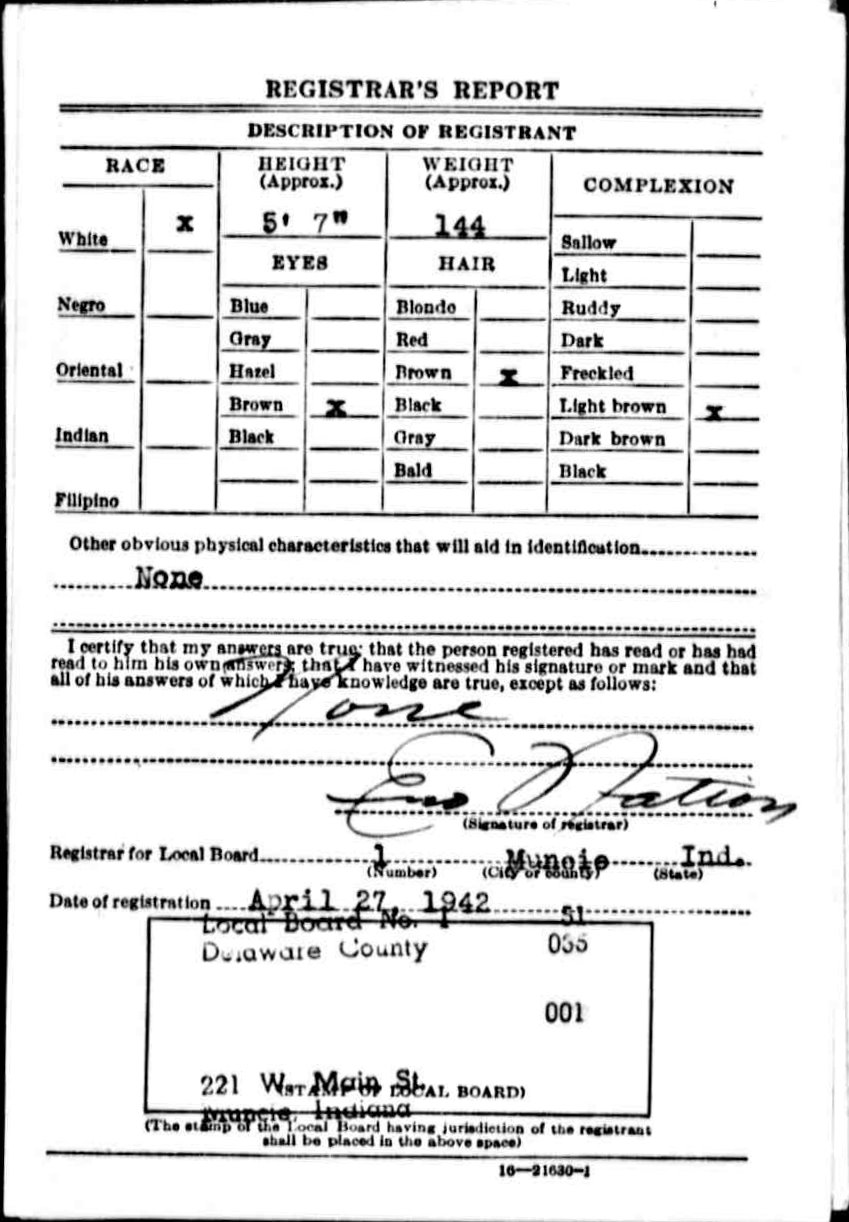 REGISTRAR'S REPORT
DESCRIPTION OF REGISTRANT
RACE
HEIGHT
(Approx.)
WEIGHT
(Approx.)
COMPLEXION
White X
5' 7"
144
Negro
Oriental
Indian
Filipino
EYES
Blue
Gray
Hazel
Brown X
Black
HAIR
Blonde
Red
Brown X
Black
Gray
Bald
Sallow
Light
Ruddy
Dark
Freckled
Light brown X
Dark brown
Black
Other obvious physical characteristics that will aid in identification
None
I certify that my answers are true; that the person registered has read or has had
read to him his own answers; that I have witnessed his signature or mark and that
all of his answers of which I have knowledge are true, except as follows:
None
Nation
(Signature of registrar)
Registrar for Local Board 1 Muncie Ind.
(Number) (City or county) (State)
Date of registration April 27, 1942
Local Board No. 1 51
Delaware County 035
001
221 W. Main St.
(STAMP OF LOCAL BOARD)
Muncie, Indiana
(The stamp of the Local Board having jurisdiction of the registrant
shall be placed in the above space)
16—21630-1